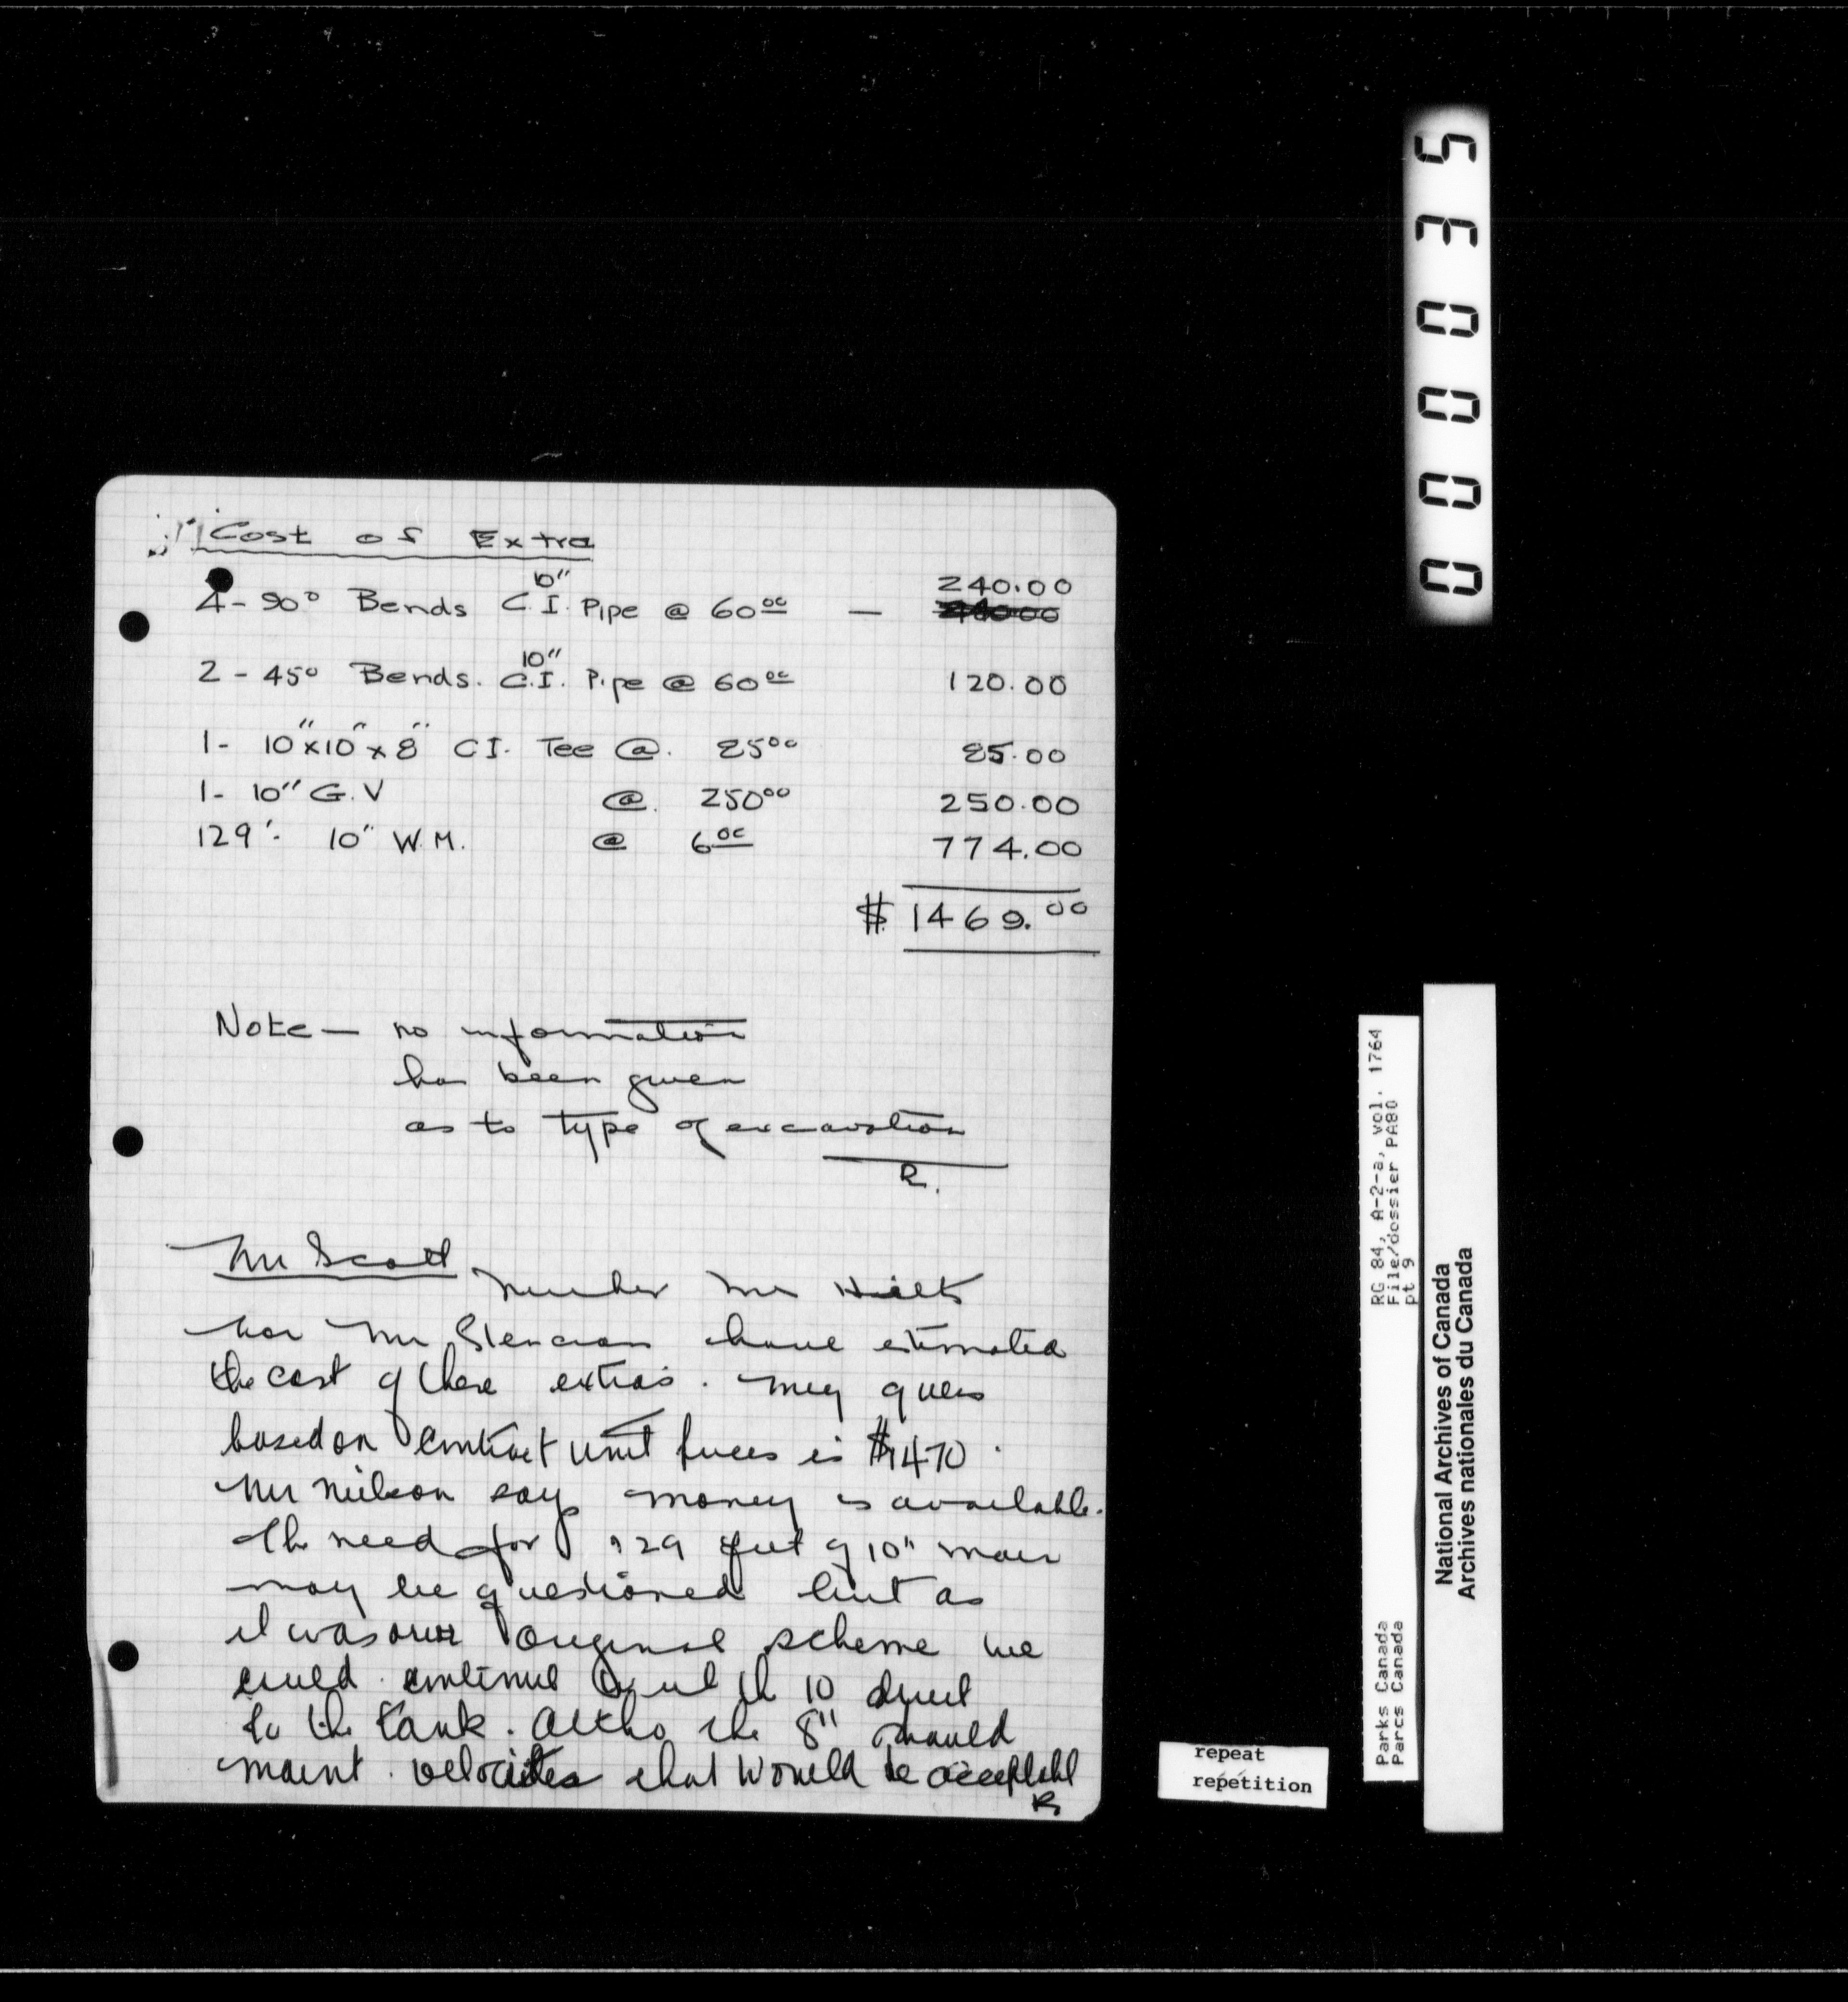 Cost of Extra
4 - 90° Bends 10" C.I. Pipe @ 60.00 — 240.00
2 - 45° Bends. 10" C.I. Pipe @ 60.00 120.00
1 - 10" x 10" x 8" C.I. Tee @. 85.00 85.00
1 - 10" G.V @. 250.00 250.00
129'- 10" W.M. @ 6.00 774.00
$ 1469.00
Note — no information
has been given
as to type of excavation
R.
Mr Scott
Neither Mr
nor Mr have estimated
the cost of these extras. My guess
based on contract unit prices is $1470.
Mr Neilson says money is available.
The need for 129 feet of 10" main
may be questioned but as
it was our original scheme we
could continue with 10 direct
to the tank. Altho the 8" should
maint. velocities that would be acceptabl
R
000035
RG 84, A-2-a, vol. 1764
File/dossier PA80
pt 9
Parks Canada
Parcs Canada
National Archives of Canada
Archives nationales du Canada
repeat
repetition